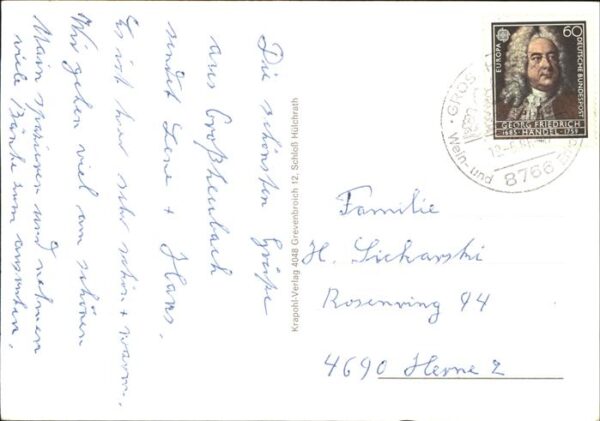 Die schönsten Grüße
aus Großheubach
sendet Lene + Hans.
Es ist hier sehr schön + warm.
Wir gehen viel am schönen
Main spazieren und nehmen
viele Bänke zum ausruhen.
Krapohl-Verlag 4048 Grevenbroich 12, Schloß Hülchrath
EUROPA
60
DEUTSCHE BUNDESPOST
GEORG FRIEDRICH
1685 HÄNDEL 1759
GROS
Wein- und
8766
Familie
H. Sickarski
Rosenring 94
4690 Herne 2